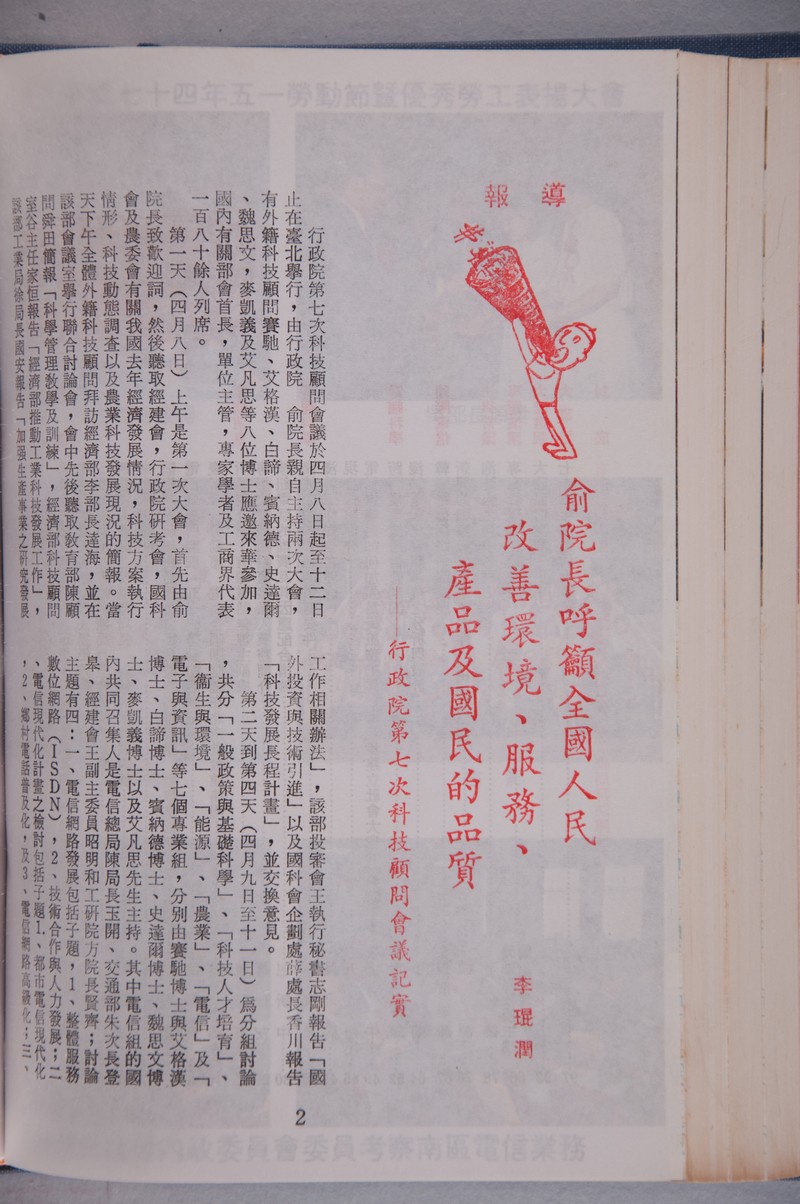 報導
俞院長呼籲全國人民
改善環境、服務、
產品及國民的品質
──行政院第七次科技顧問會議記實
李琨潤
行政院第七次科技顧問會議於四月八日起至十二日
止在臺北舉行，由行政院　俞院長親自主持兩次大會，
有外籍科技顧問賽馳、艾格漢、白諦、賓納德、史達爾
、魏思文，麥凱義及艾凡思等八位博士應邀來華參加，
國內有關部會首長，單位主管，專家學者及工商界代表
一百八十餘人列席。
第一天（四月八日）上午是第一次大會，首先由俞
院長致歡迎詞，然後聽取經建會，行政院研考會，國科
會及農委會有關我國去年經濟發展情況，科技方案執行
情形、科技動態調查以及農業科技發展現況的簡報。當
天下午全體外籍科技顧問拜訪經濟部李部長達海，並在
該部會議室舉行聯合討論會，會中先後聽取教育部陳顧
問舜田簡報「科學管理教學及訓練」，經濟部科技顧問
室谷主任家恒報告「經濟部推動工業科技發展工作」，
該部工業局徐局長國安報告「加強生產事業之研究發展
工作相關辦法」，該部投審會王執行秘書志剛報告「國
外投資與技術引進」以及國科會企劃處薛處長香川報告
「科技發展長程計畫」，並交換意見。
第二天到第四天（四月九日至十一日）爲分組討論
，共分「一般政策與基礎科學」、「科技人才培育」、
「衞生與環境」、「能源」、「農業」、「電信」及「
電子與資訊」等七個專業組，分別由賽馳博士與艾格漢
博士、白諦博士、賓納德博士、史達爾博士、魏思文博
士、麥凱義博士以及艾凡思先生主持。其中電信組的國
內共同召集人是電信總局陳局長玉開、交通部朱次長登
皋、經建會王副主委員昭明和工研院方院長賢齊；討論
主題有四：一、電信網路發展包括子題，1、整體服務
數位網路（ISDN），2、技術合作與人力發展；二
、電信現代化計畫之檢討包括子題1、都市電信現代化
，2、鄉村電話普及化，及3、電信網路高級化；三、
2